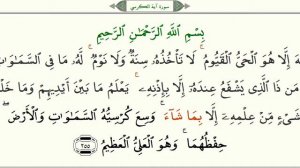 سورة آية الكرسي
بِسْمِ اللَّهِ الرَّحْمَٰنِ الرَّحِيمِ
إِلَّا هُوَ الْحَيُّ الْقَيُّومُ ۚ لَا تَأْخُذُهُ سِنَةٌ وَلَا نَوْمٌ ۚ لَهُ مَا فِي السَّمَاوَاتِ
مَن ذَا الَّذِي يَشْفَعُ عِندَهُ إِلَّا بِإِذْنِهِ ۚ يَعْلَمُ مَا بَيْنَ أَيْدِيهِمْ وَمَا
مِّنْ عِلْمِهِ إِلَّا بِمَا شَاءَ ۚ وَسِعَ كُرْسِيُّهُ السَّمَاوَاتِ وَالْأَرْضَ ۖ
حِفْظُهُمَا ۚ وَهُوَ الْعَلِيُّ الْعَظِيمُ ٢٥٥